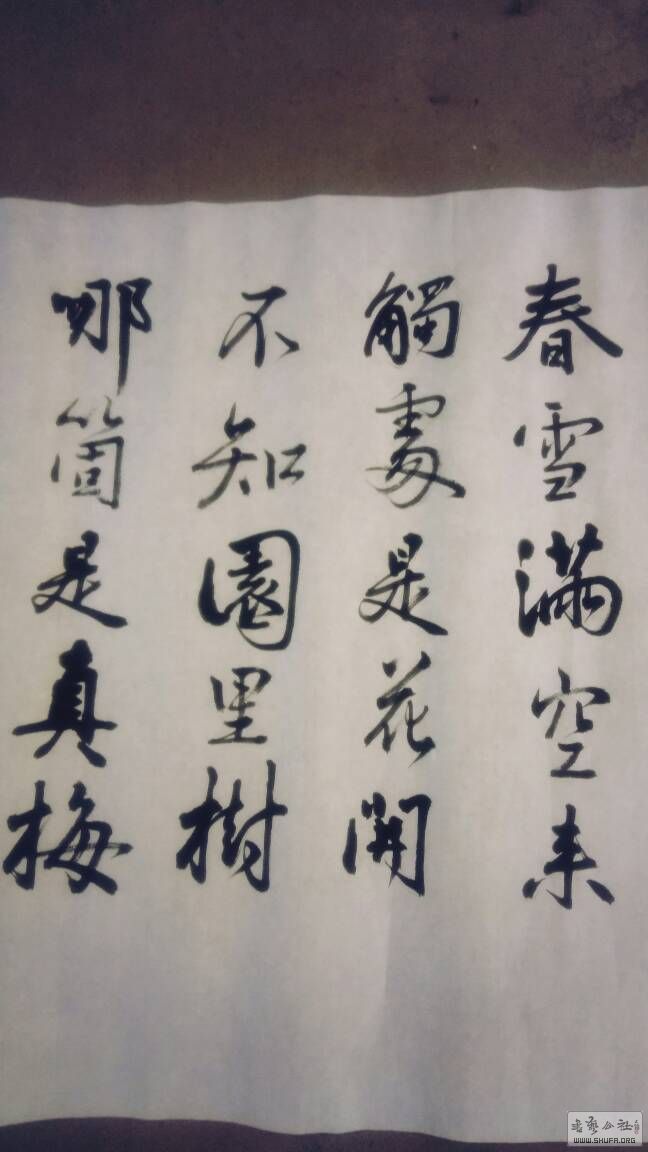 春雪滿空来
觸處是花開
不知園里樹
哪箇是真梅
WWW.SHUFA.ORG